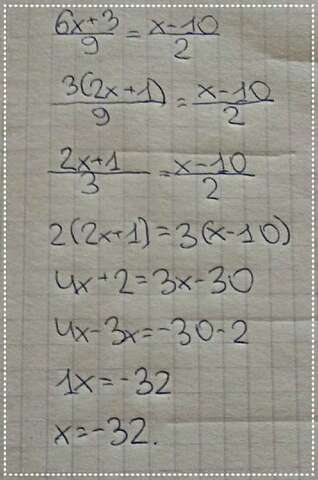 6x+3/9 = x-10/2
3(2x+1)/9 = x-10/2
2x+1/3 = x-10/2
2(2x+1)=3(x-10)
4x+2=3x-30
4x-3x=-30-2
1x=-32
x=-32.